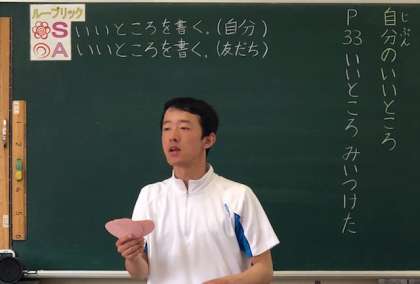 じぶん
自分のいいところ
P33 いいところ みいつけた
ルーブリック
S いいところを書く。(自分)
A いいところを書く。(友だち)